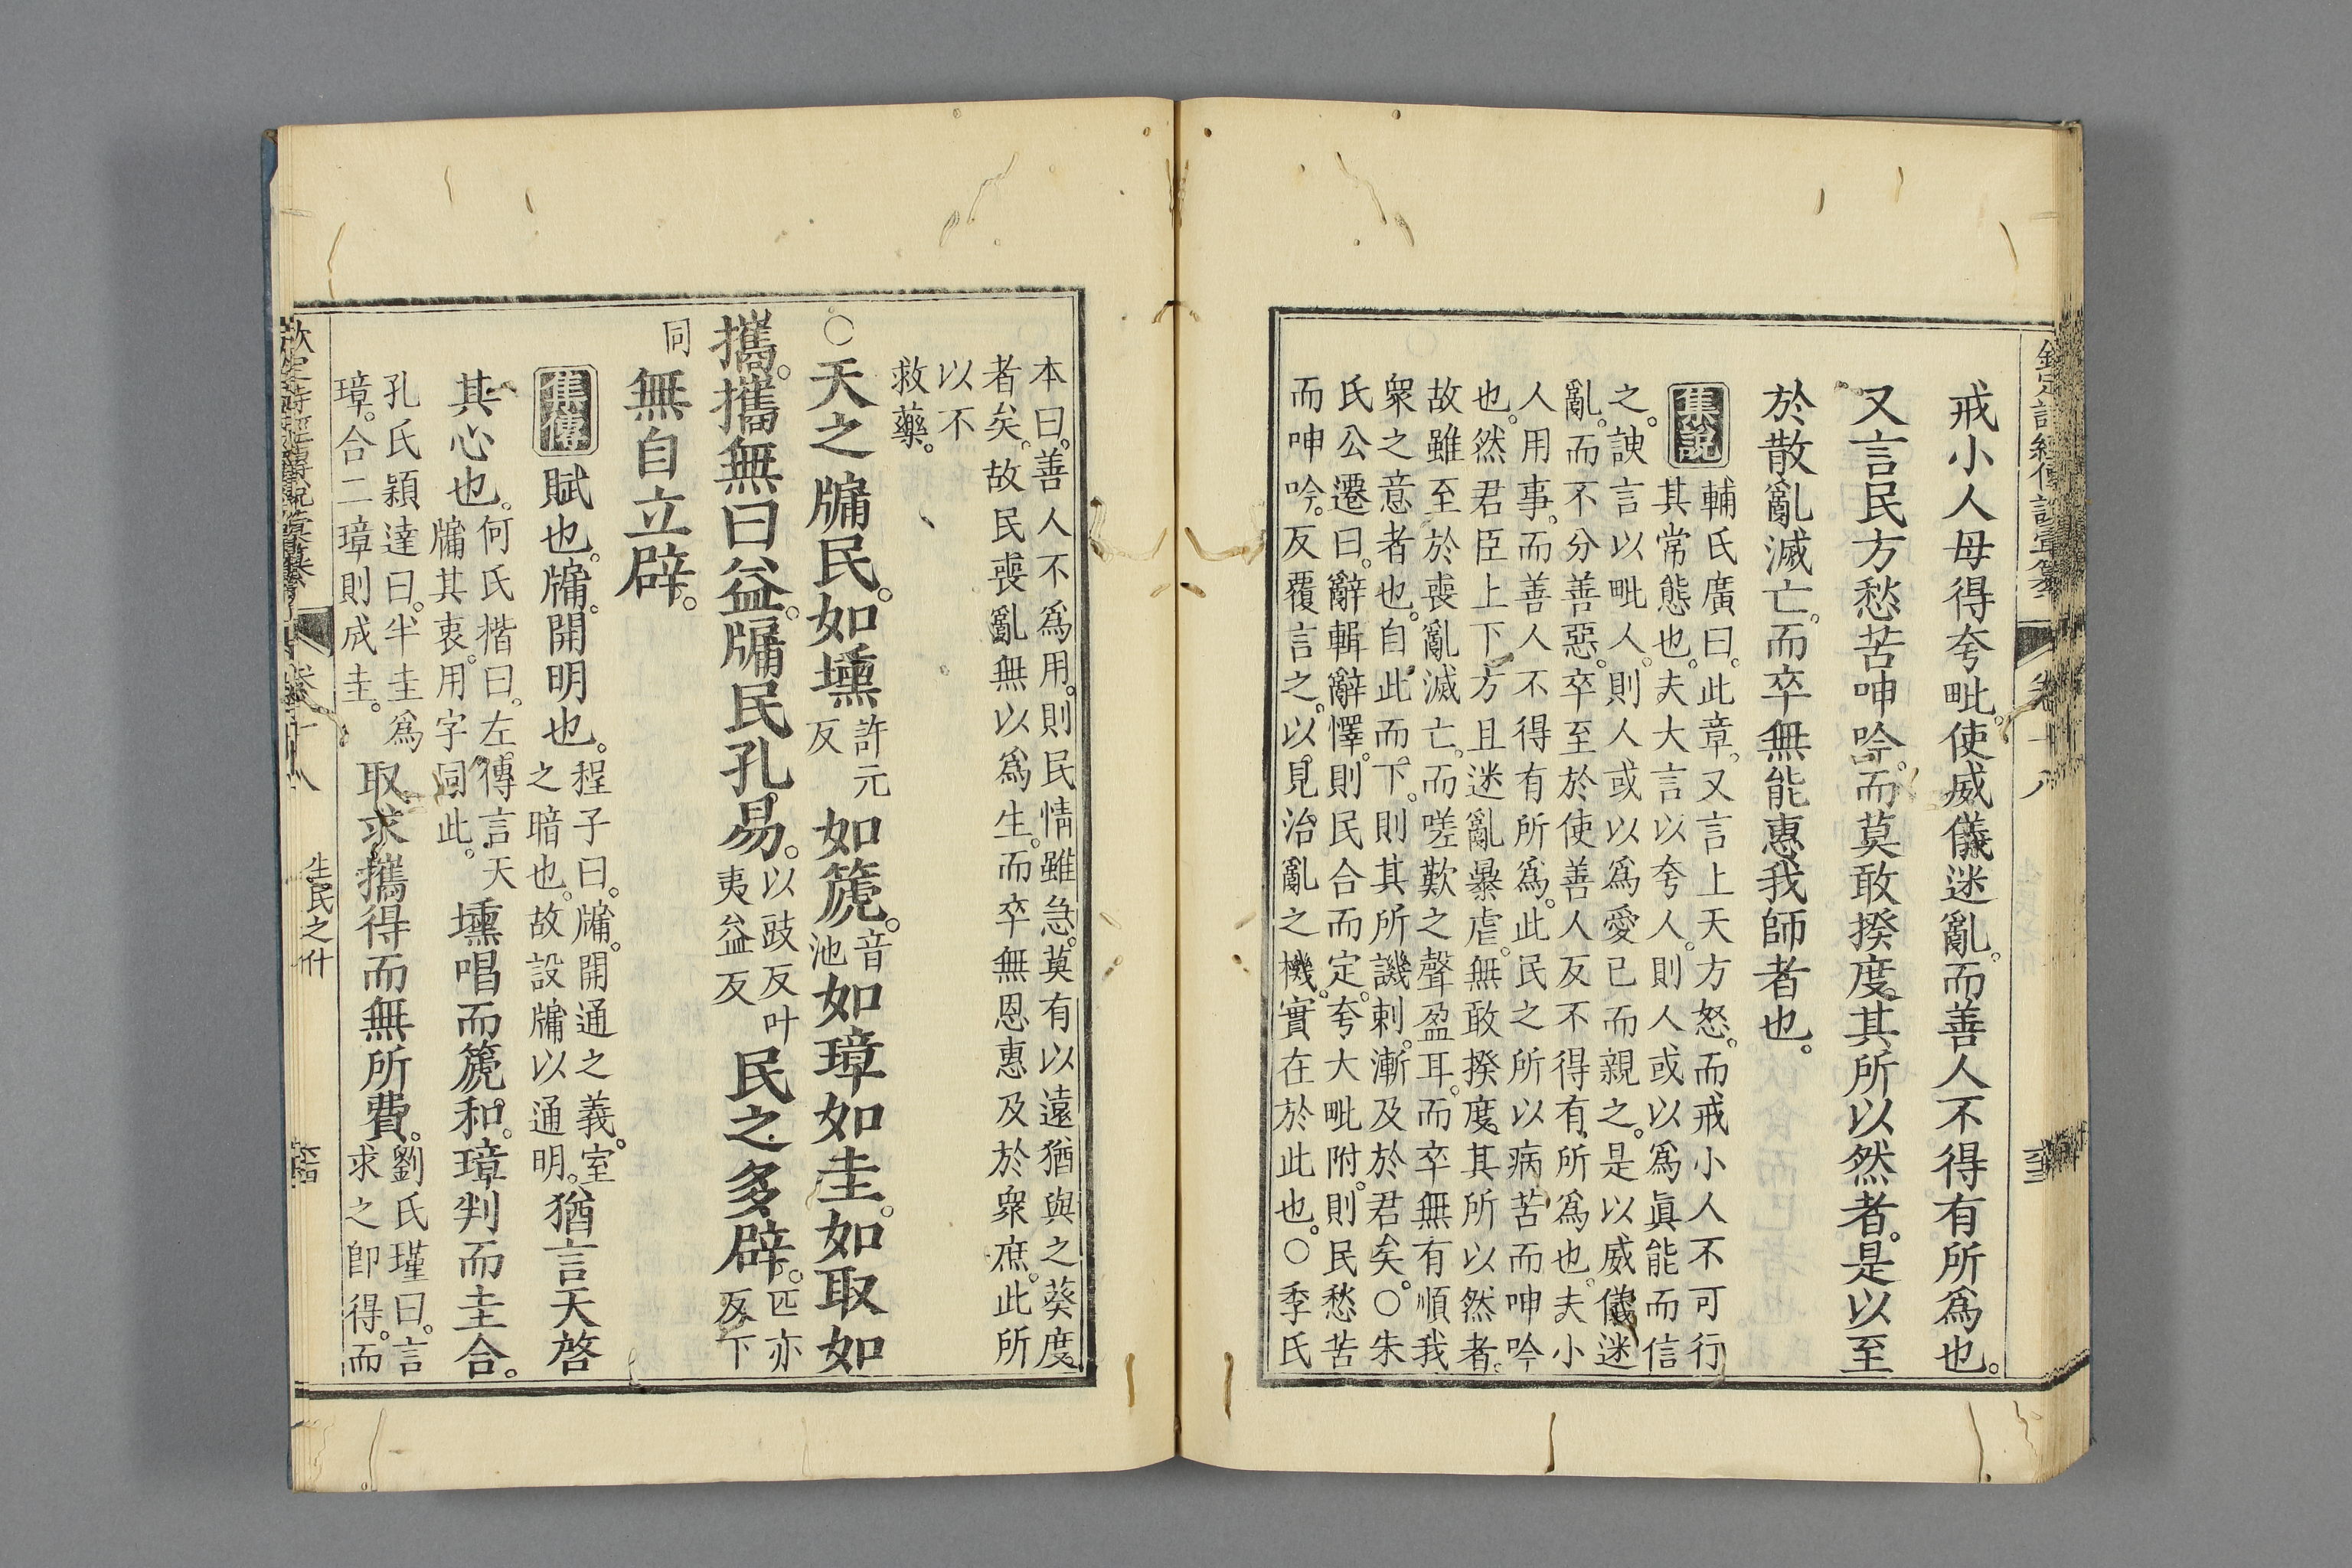 欽定詩經傳說彙纂 卷十八
戒小人毋得夸毗。使威儀迷亂。而善人不得有所爲也。
又言民方愁苦呻吟。而莫敢揆度其所以然者。是以至
於散亂滅亡。而卒無能惠我師者也。
集說 輔氏廣曰。此章。又言上天方怒。而戒小人不可行
其常態也。夫大言以夸人。則人或以爲眞能而信
之。諛言以毗人。則人或以爲愛已而親之。是以威儀迷
亂。而不分善惡。卒至於使善人反不得有所爲也。夫小
人用事。而善人不得有所爲。此民之所以病苦而呻吟
也。然君臣上下方且迷亂暴虐。無敢揆度其所以然者。
故雖至於喪亂滅亡。而嗟歎之聲盈耳。而卒無有順我
衆之意者也。自此而下。則其所譏刺。漸及於君矣。○朱
氏公遷曰。辭輯辭懌。則民合而定。夸大毗附。則民愁苦
而呻吟。反覆言之。以見治亂之機。實在於此也。○季氏
本曰。善人不爲用。則民情雖急。莫有以遠猶與之葵度
者矣。故民喪亂無以爲生。而卒無恩惠及於衆庶。此所
以不
救藥。
○天之牖民。如壎許元反如篪。音池如璋如圭。如取如
攜。攜無曰益。牖民孔易。以豉反叶夷益反民之多辟。匹亦反下
同無自立辟。
集傳 賦也。牖。開明也。程子曰。牖。開通之義。室之暗也。故設牖以通明。猶言天啓
其心也。何氏楷曰。左傳言天牖其衷。用字同此。壎唱而篪和。璋判而圭合。
孔氏穎達曰。半圭爲璋。合二璋則成圭。取求攜得而無所費。劉氏瑾曰。言求之卽得。而
卷十八 生民之什